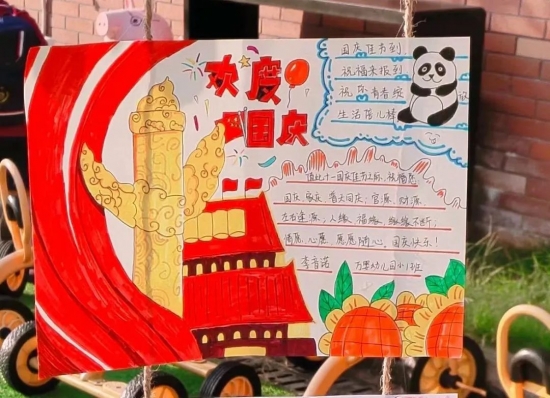 欢度
国庆
国庆佳节到
祝福来报到
祝你青春绽放
生活落儿棒
值此十一国庆佳节之际，祝福您
国庆、家庆、普天同庆，官源、财源、
左右逢源，人缘、福缘、缘缘不断，
情愿、心愿、愿愿随心，国庆快乐！
李青诺 万里幼儿园小1班